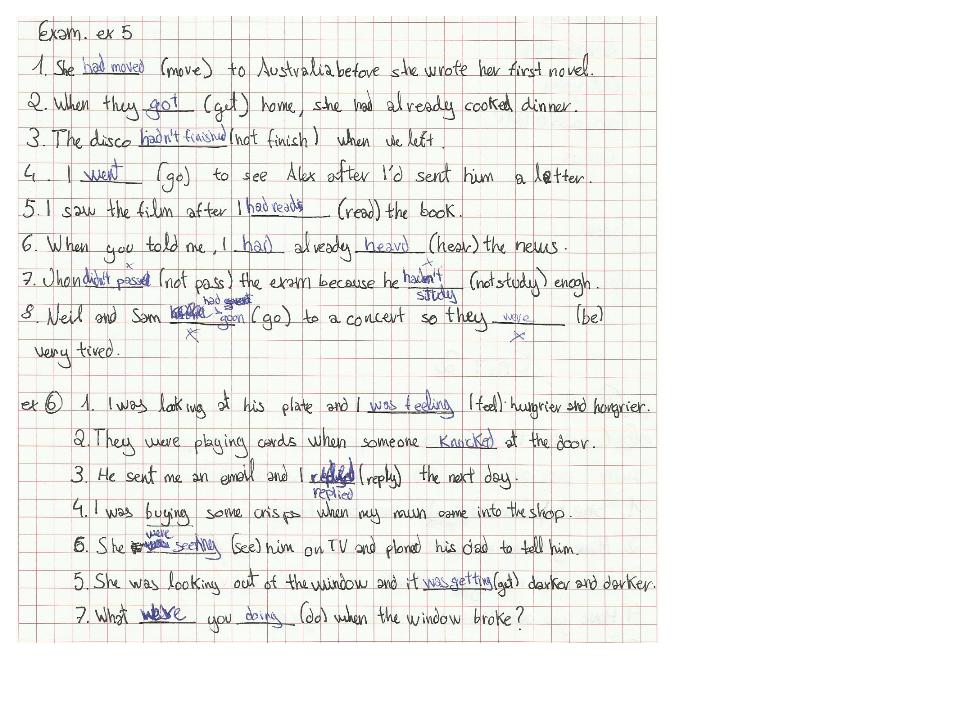 Exam. ex 5
1. She had moved (move) to Australia before she wrote her first novel.
2. When they got (get) home, she had already cooked dinner.
3. The disco hadn't finished (not finish) when we left.
4. I went (go) to see Alex after I'd sent him a letter.
5. I saw the film after I had reads (read) the book.
6. When you told me, I had already heard (hear) the news.
7. Jhon didn't passed (not pass) the exam because he hadn't study (not study) enogh.
8. Neil and Sam had goon (go) to a concert so they were (be)
very tired.
ex 6 1. I was looking at his plate and I was feeling (feel) hungrier and hongrier.
2. They were playing cards when someone knocked at the door.
3. He sent me an email and I replied (reply) the next day.
4. I was buying some crisps when my mum came into the shop.
6. She were seeing (see) him on TV and phoned his dad to tell him.
5. She was looking out of the window and it was getting (get) darker and darker.
7. What were you doing (do) when the window broke?